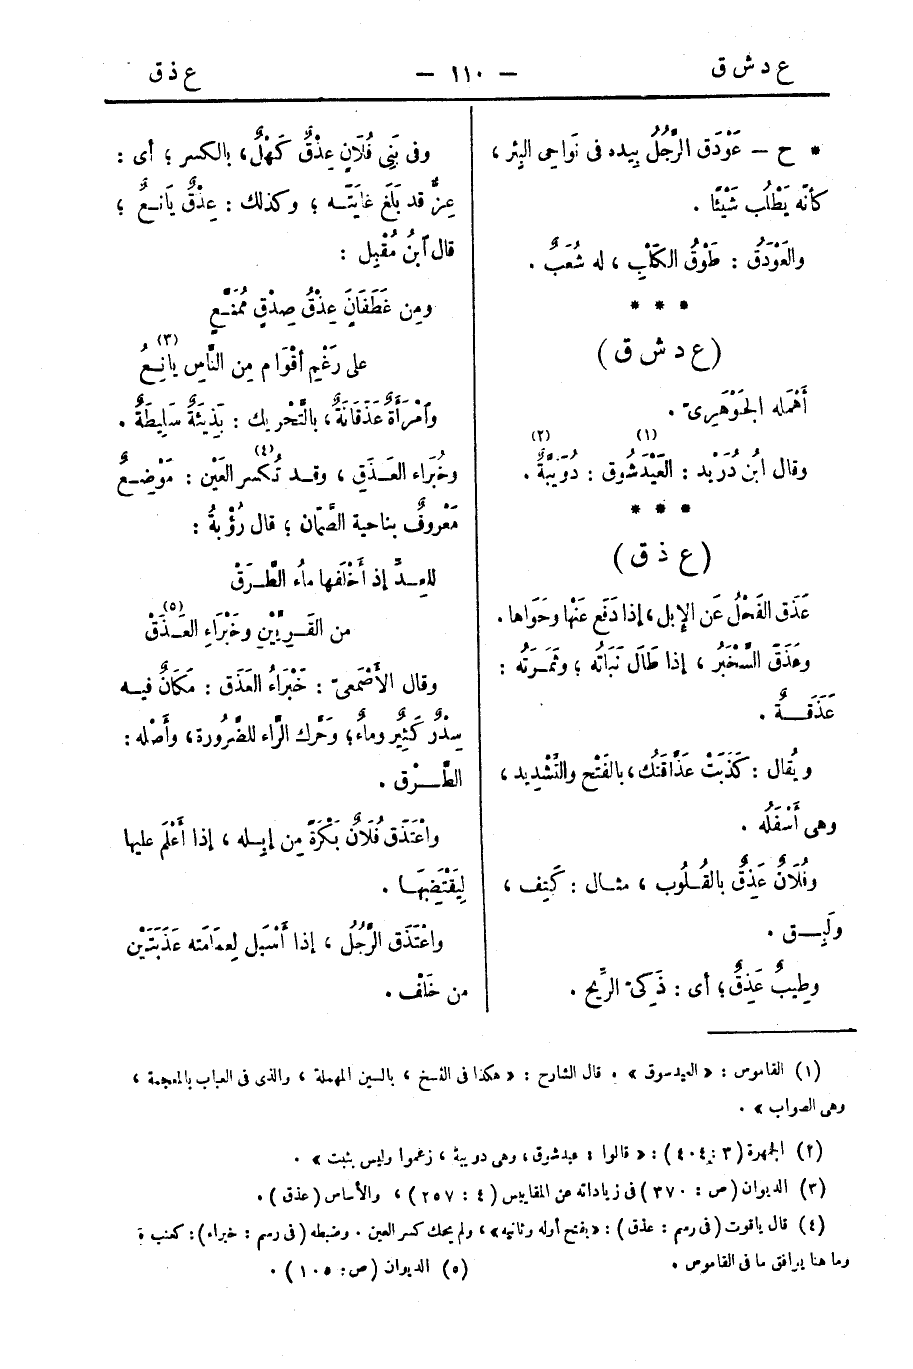 ع د ش ق
— ١١٠ —
ع ذ ق
* ح — عَوْدَق الرَّجُلُ بِيده فى نَواحِى البِئر ،
كأنّه يَطْلُب شَيْئًا .
والعَوْدَقُ : طَوْقُ الكَلْبِ ، له شُعَبٌ .
* * *
(ع د ش ق)
أَهْمَله الجَوْهَرِىّ .
وقال ابنُ دُرَيْد : العَيْدَشُوق (١) : دُوَيْبَّةٌ (٢) .
* * *
(ع ذ ق)
عَذَق الفَحْلُ عَن الإبل ، إذا دَفَع عَنْها وحَوَاها .
وعَذَقَ السَّخْبَرُ ، إذا طَالَ نَبَاتُه ؛ وثَمَرَتُه :
عَذَقَةٌ .
ويُقال : كَذَبَتْ عَذَّاقَتُك ، بالفَتْح والتَّشْدِيد ،
وهى أَسْفَلُه .
وفُلَانٌ عَذِقٌ بالقُلُوب ، مثال : كَتِف ،
ولَبِق .
وطِيبٌ عَذِقٌ ؛ أى : ذَكِىّ الرِّيح .
وفى بَنِى فُلَانٍ عِذْقٌ كَهْلٌ ، بالكسر ؛ أى :
عِزٌّ قد بَلَغ غايَتَه ؛ وكذلك : عِذْقٌ يَانِعٌ ؛
قال ابنُ مُقْبِل :
ومِن غَطَفَانَ عِذْقُ صِدْقٍ مُمَنَّعٍ
على رَغْمِ أَقْوَامٍ مِن النَّاسِ يانِعُ (٣)
وامْرَأَةٌ عَذَقَانَةٌ ، بالتَّحْرِيك : بَذِيئَةٌ سَلِيطَةٌ .
وخُبَراء العَذَقِ ، وقد تُكسر (٤) العَيْن : مَوْضِعٌ
مَعْروفٌ بناحية الصَّمَّان ؛ قال رُؤْبةُ :
للعِدِّ إذ أَخْلَفها ماءُ الطَّرَقْ
من القَرِيَّيْنِ وخَبْرَاءِ العَذَقْ (٥)
وقال الأَصْمَعىّ : خَبْرَاءُ العَذَق : مَكَانٌ فيه
سِدْرٌ كَثِيرٌ وماءٌ ؛ وحَرَّك الرَّاء للضَّرُورة ، وأَصْله :
الطَّرْق .
واعْتَذَق فُلَانٌ بَكْرَةً مِن إبله ، إذا أَعْلَم عليها
لِيَقْتَضِبَها .
واعْتَذَق الرَّجُلُ ، إذا أَسْبَل لِعمَامَته عَذَبَتَيْن
من خَلْف .
(١) القاموس : « العيدسوق » . قال الشارح : « هكذا فى النسخ ، بالسين المهملة ، والذى فى العباب بالمعجمة ،
وهى الصواب » .
(٢) الجمهرة (٣ : ٤٠٤) : « قالوا : عيدشوق ، وهى دويبة ، زعموا وليس بثبت » .
(٣) الديوان (ص : ٣٧٠) فى زياداته عن المقاييس (٤ : ٢٥٧) ، والأساس (عذق) .
(٤) قال ياقوت (فى رسم : عذق) : « بفتح أوله وثانيه » ، ولم يحك كسر العين . وضبطه (فى رسم : خبراء) : كعنبة
وما هنا يوافق ما فى القاموس .
(٥) الديوان (ص : ١٠٥) .